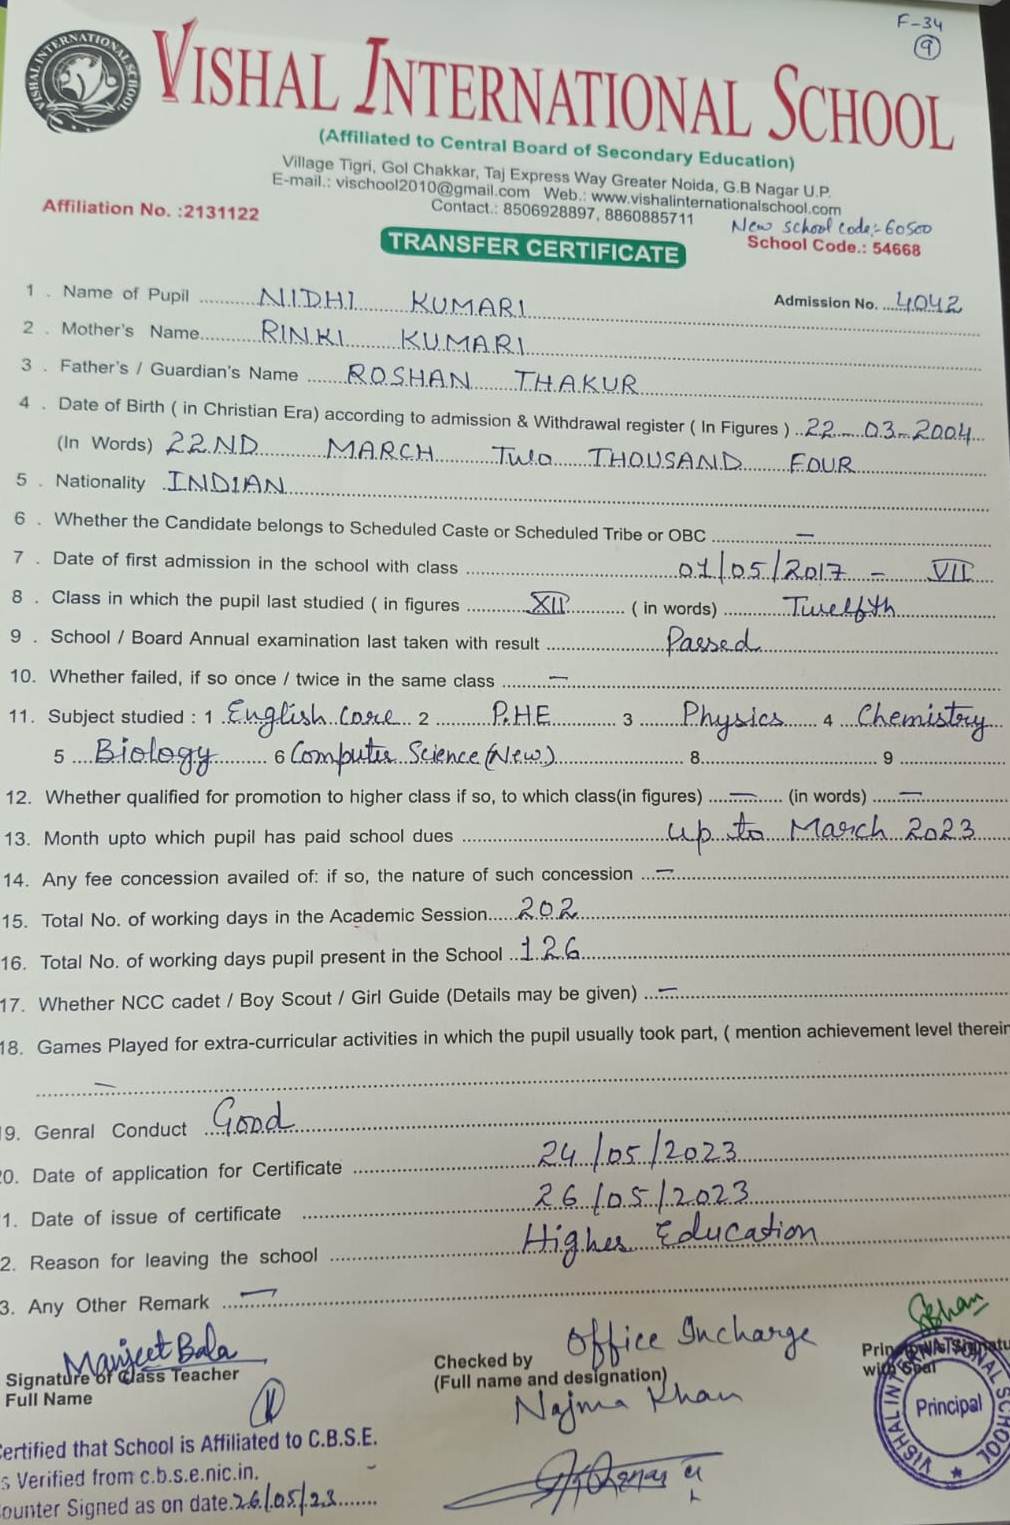 F-34
9
VISHAL INTERNATIONAL SCHOOL
VISHAL INTERNATIONAL SCHOOL
(Affiliated to Central Board of Secondary Education)
Village Tigri, Gol Chakkar, Taj Express Way Greater Noida, G.B Nagar U.P.
E-mail.: vischool2010@gmail.com Web.: www.vishalinternationalschool.com
Contact.: 8506928897, 8860885711
Affiliation No. :2131122
New school code:- 60500
School Code.: 54668
TRANSFER CERTIFICATE
1 . Name of Pupil NIDHI KUMARI Admission No. 4042
2 . Mother's Name RINKI KUMARI
3 . Father's / Guardian's Name ROSHAN THAKUR
4 . Date of Birth ( in Christian Era) according to admission & Withdrawal register ( In Figures ) 22-03-2004
(In Words) 22ND MARCH Two THOUSAND FOUR
5 . Nationality INDIAN
6 . Whether the Candidate belongs to Scheduled Caste or Scheduled Tribe or OBC —
7 . Date of first admission in the school with class 01/05/2017 - VII
8 . Class in which the pupil last studied ( in figures XII ( in words) Twelfth
9 . School / Board Annual examination last taken with result Passed
10. Whether failed, if so once / twice in the same class —
11. Subject studied : 1 English Core 2 P.HE 3 Physics 4 Chemistry
5 Biology 6 Computer Science (New) 8 9
12. Whether qualified for promotion to higher class if so, to which class(in figures) — (in words) —
13. Month upto which pupil has paid school dues up to March 2023
14. Any fee concession availed of: if so, the nature of such concession —
15. Total No. of working days in the Academic Session 202
16. Total No. of working days pupil present in the School 126
17. Whether NCC cadet / Boy Scout / Girl Guide (Details may be given) —
18. Games Played for extra-curricular activities in which the pupil usually took part, ( mention achievement level therein
—
9. Genral Conduct Good
0. Date of application for Certificate 24/05/2023
1. Date of issue of certificate 26/05/2023
2. Reason for leaving the school Higher Education
3. Any Other Remark —
Manjeet Bala
Signature of Class Teacher
Full Name
Checked by Office Incharge
(Full name and designation)
Najma Khan
with Seal
VISHAL INTERNATIONAL SCHOOL
Principal
Certified that School is Affiliated to C.B.S.E.
s Verified from c.b.s.e.nic.in.
ounter Signed as on date.26/05/23